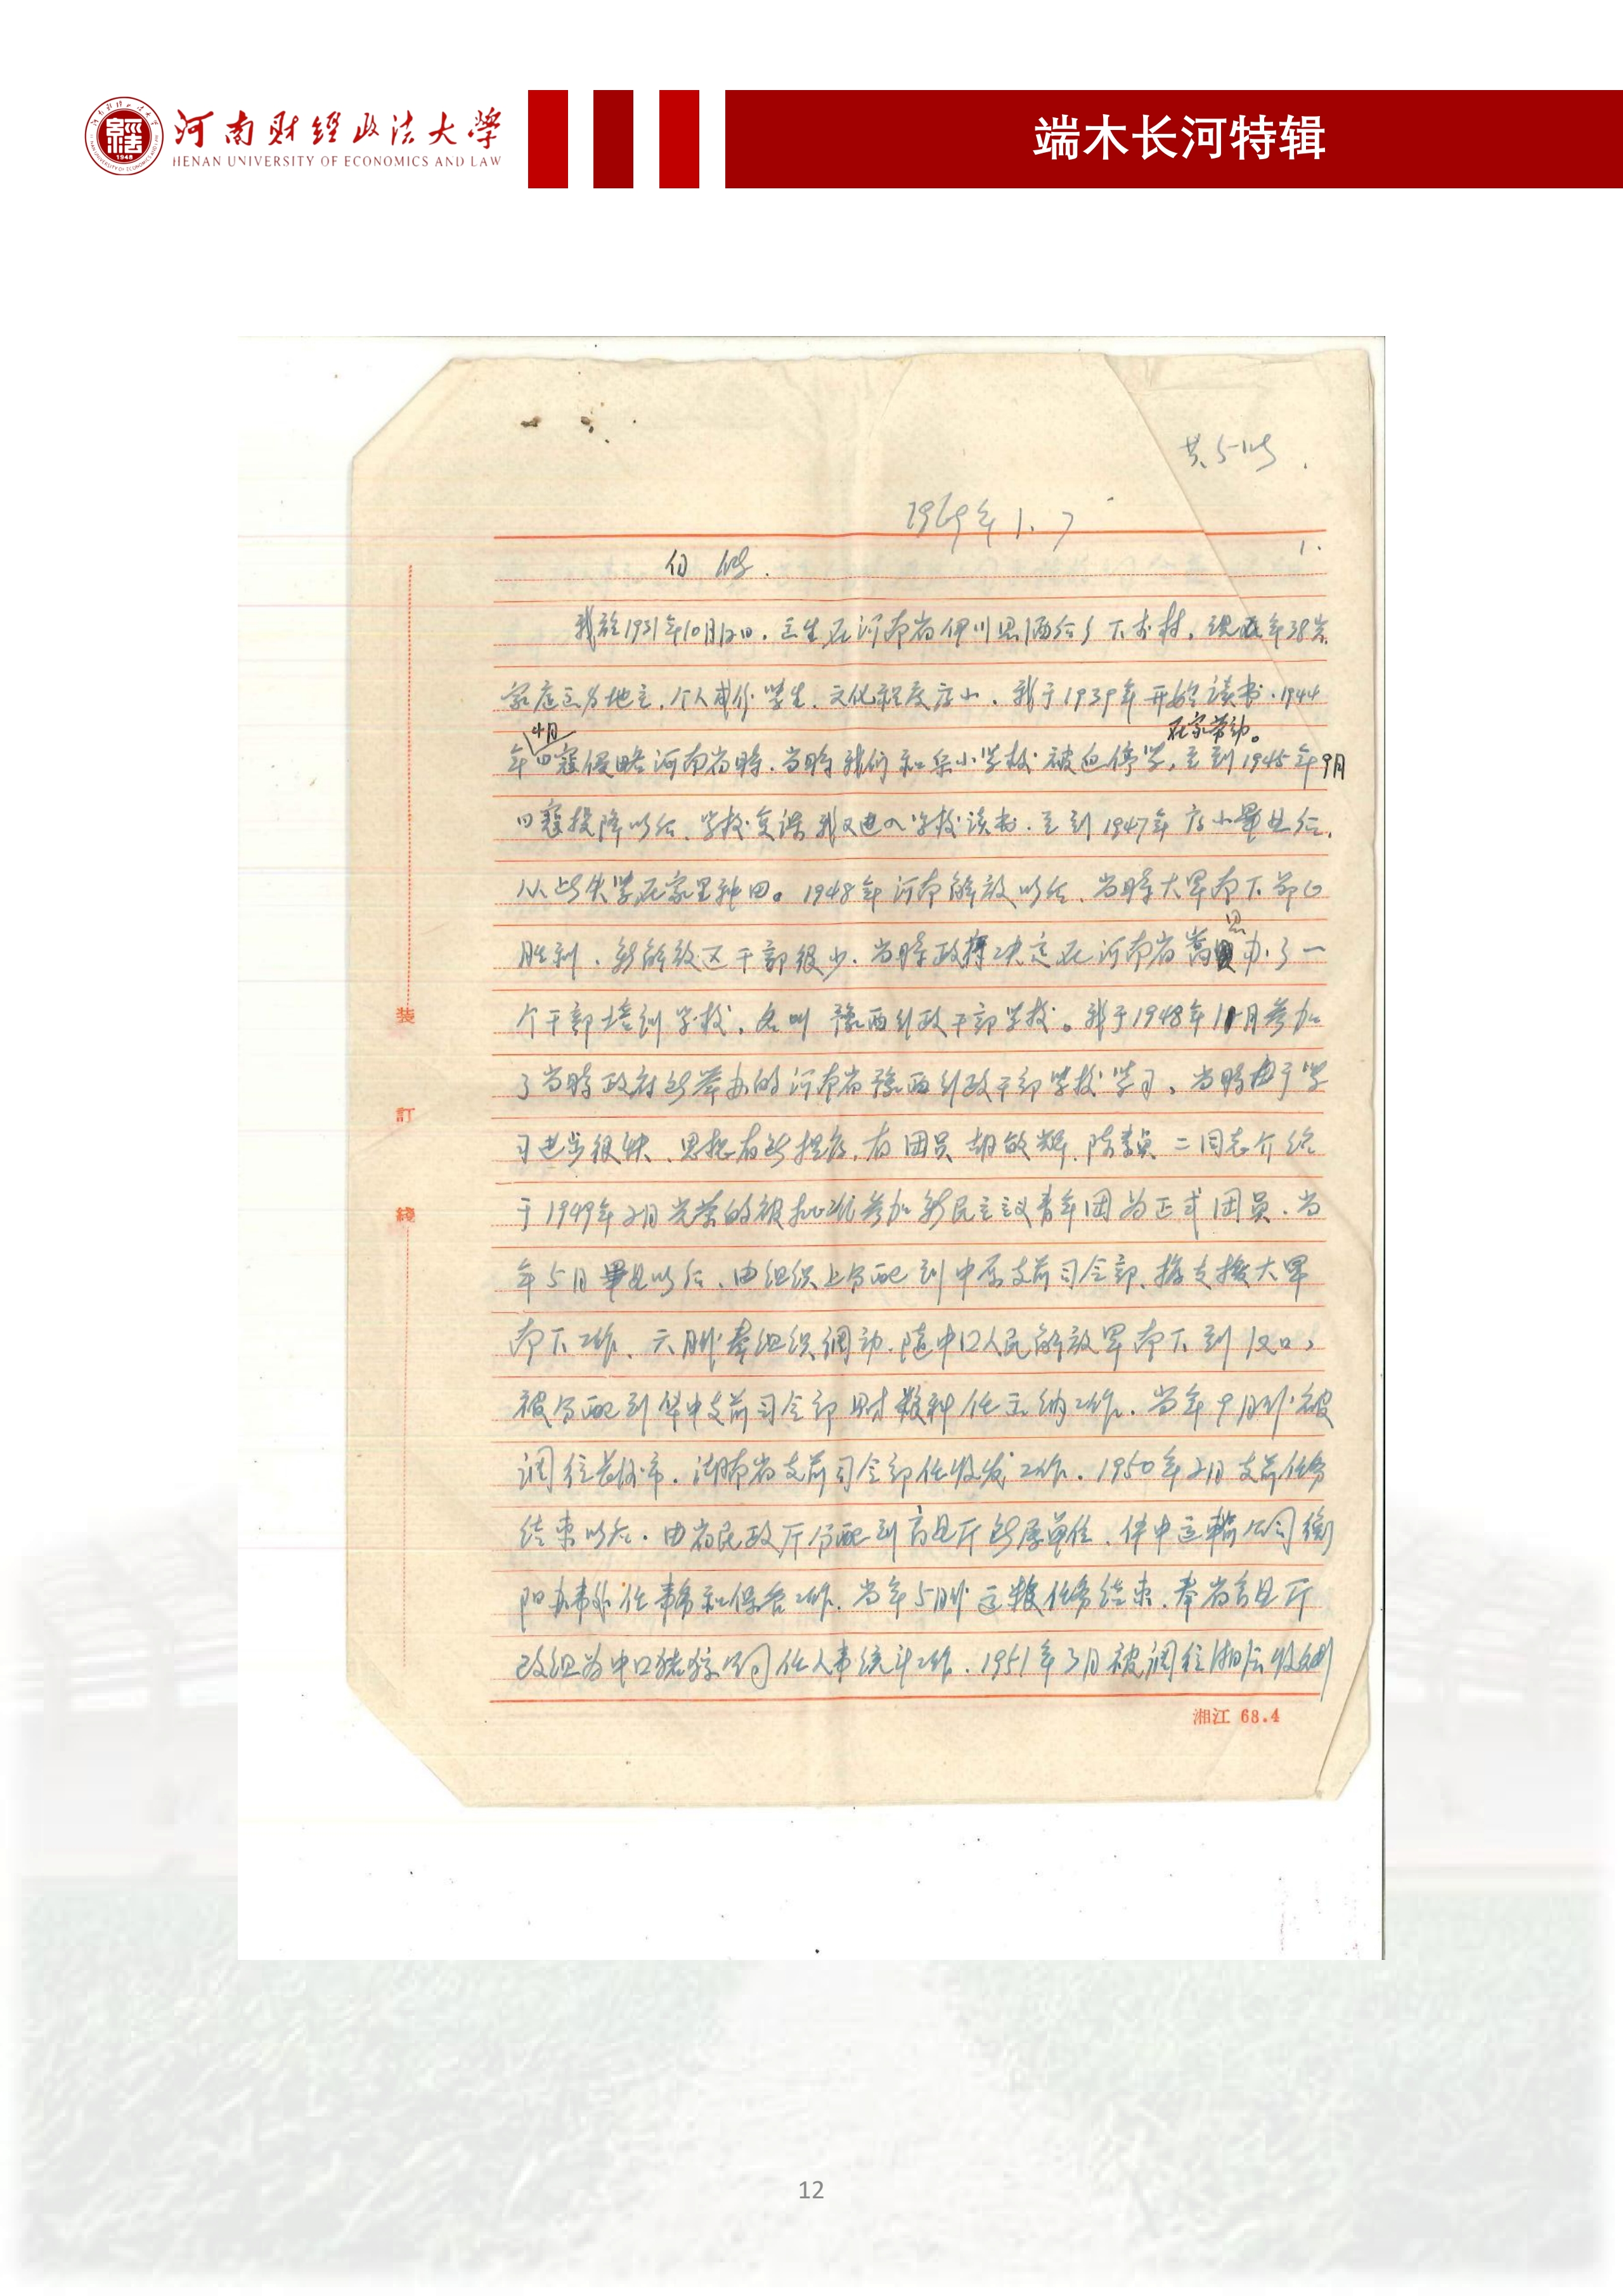 河南财经政法大学
HENAN UNIVERSITY OF ECONOMICS AND LAW
端木长河特辑
1948
共5
1969年1.7
1.
自传.
我於1931年10月12日.出生在河南省伊川县酒后乡下村.现年38岁.
家庭出身地主.个人成份学生.文化程度高小.我于1939年开始读书.1944
4月
在家劳动。
年日寇侵略河南省时.当时我们和乐小学校被迫停学.至到1945年9月
日寇投降以后.学校复课我又进入学校读书.至到1947年高小毕业后.
从此失学在家里种田。1948年河南解放以后.当时大军南下节
胜利.新解放区干部很少.当时政府决定在河南省嵩县办了一
个干部培训学校.名叫豫西行政干部学校。我于1948年11月参加
了当时政府所举办的河南省豫西行政干部学校学习.当时由于学
习进步很快.思想有所提高.有团员胡敏辉.陈贞二同志介绍
于1949年2月光荣的被批准参加新民主主义青年团为正式团员.当
年5月毕业以后.由组织上分配到中原支前司令部.搞支援大军
南下工作.六月份奉组织调动.随中国人民解放军南下到汉口,
被分配到华中支前司令部财粮科任出纳工作.当年9月份被
调往长沙市.湖南省支前司令部任收发工作.1950年2月支前任务
结束以后.由省民政厅分配到商业厅所属单位.华中运输公司衡
阳办事处任事务和保管工作.当年5月份运粮任务结束.奉省商业厅
改组为中国猪鬃公司任人事统计工作.1951年3月被调往湘
装
訂
綫
湘江 68.4
12